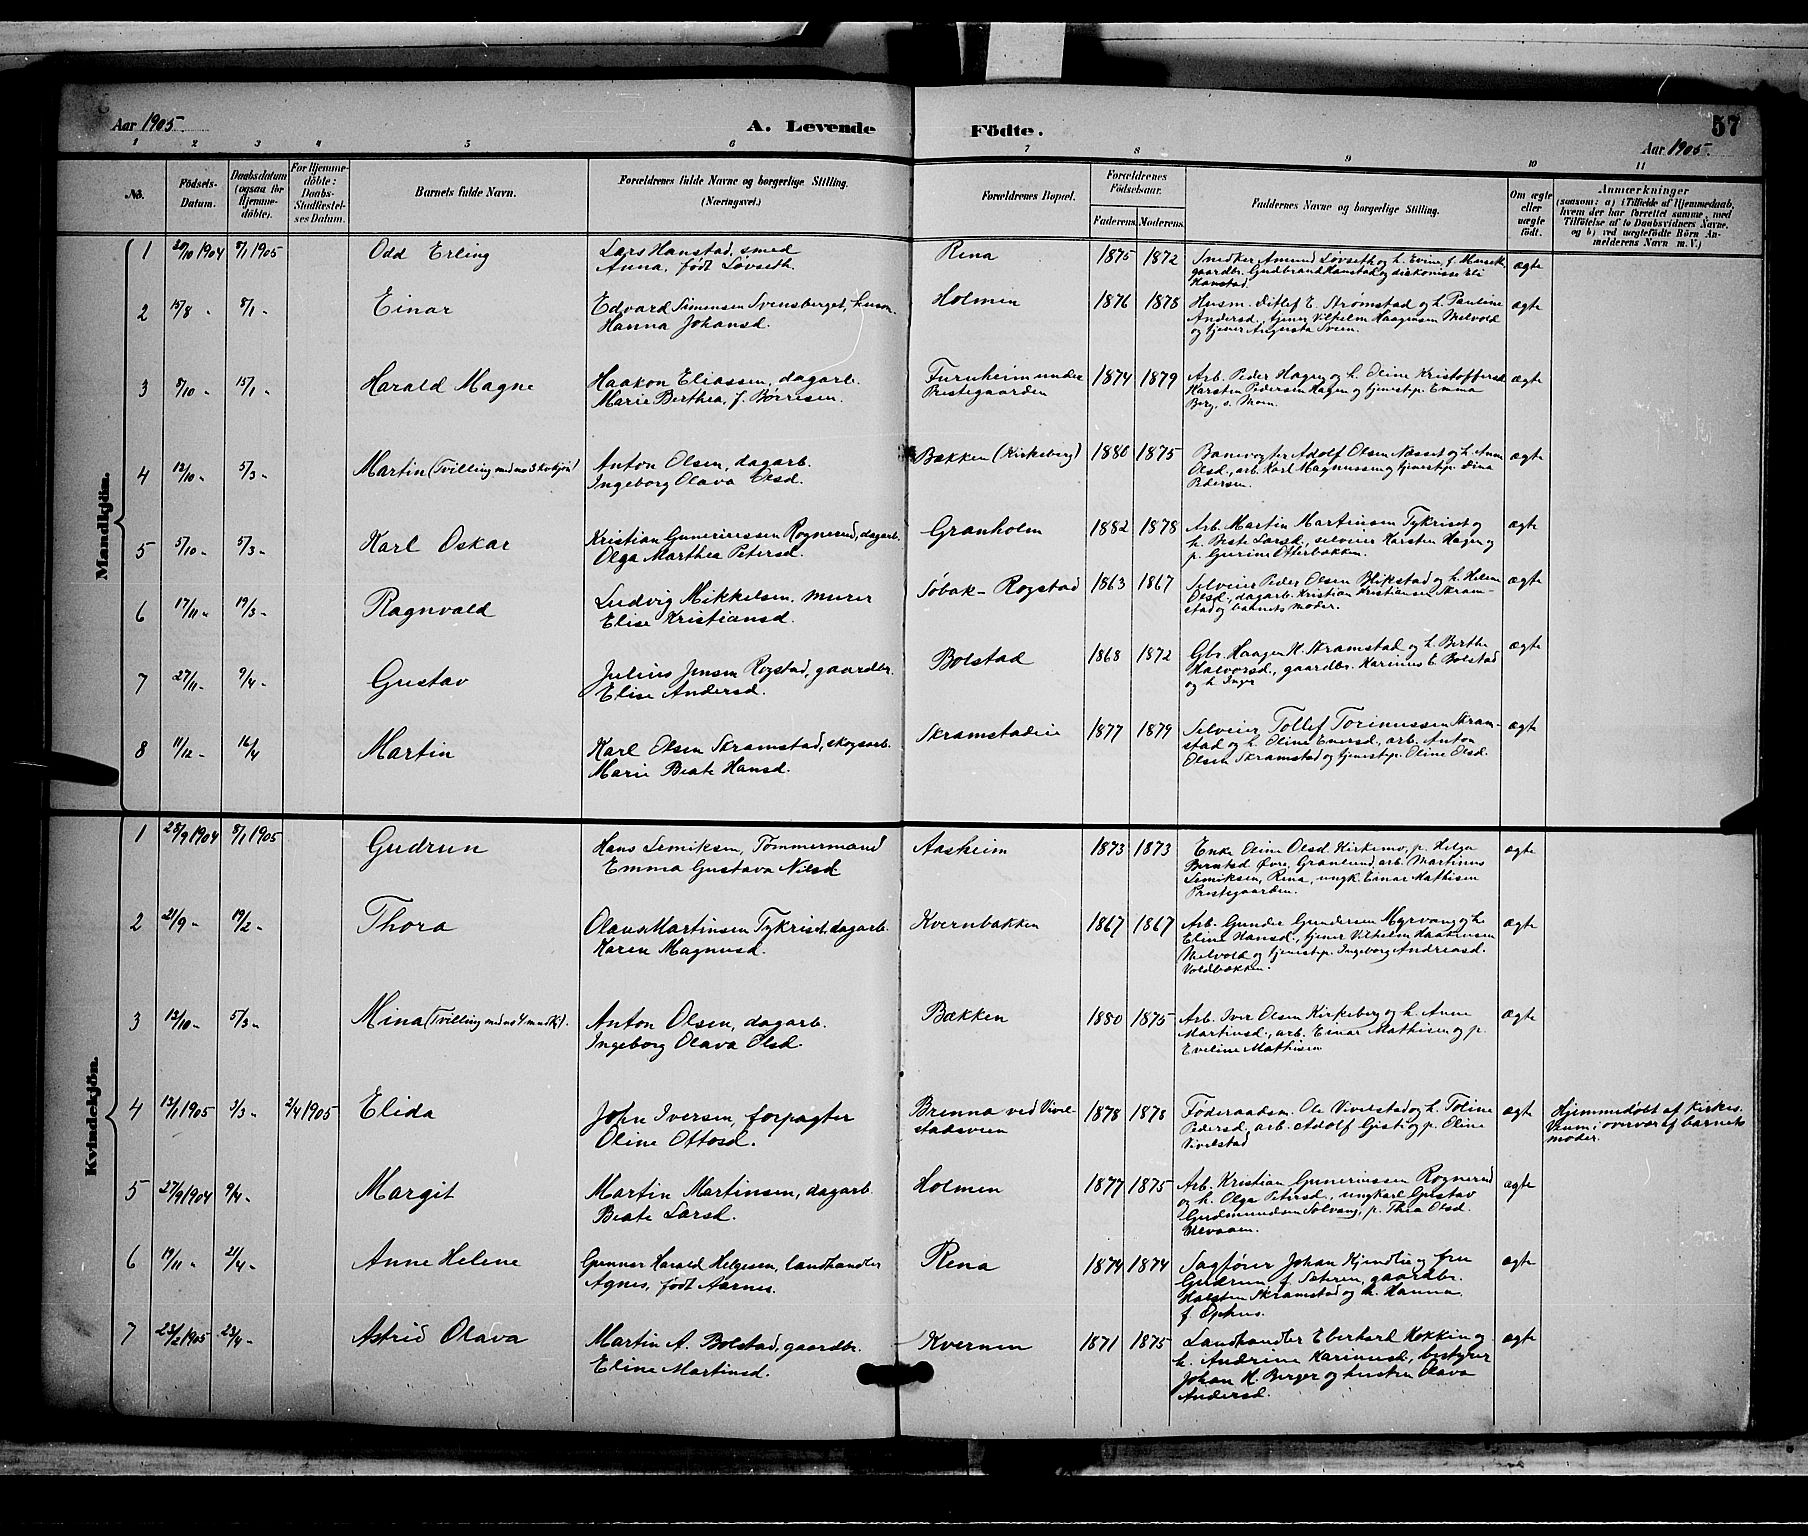 Aar 1905.
A. Levende
Födte.
57
Aar 1905.
1 2 3 4 5 6 7 8 9 10 11
No.
Födsels-Datum.
Daabsdatum (ogsaa for Hjemmedöbte).
For Hjemmedöbte: Daabs-Stadfæstelses Datum.
Barnets fulde Navn.
Forældrenes fulde Navne og borgerlige Stilling.
(Næringsvei.)
Forældrenes Bopæl.
Forældrenes Födselsaar.
Faderens. Moderens.
Faddernes Navne og borgerlige Stilling.
Om ægte eller uægte födt.
Anmærkninger
(saasom: a) i Tilfælde af Hjemmedaab, hvem der har forrettet samme, med Tilföielse af to Daabsvidners Navne, og b) ved uægtefödte Börn Anmelderens Navn m. V.)
Mandkjön.
1 20/10 1904 8/1 1905 Odd Erling
Lars Hanstad, smed
Anna, født Løvseth.
Rena 1875 1872
Snedker Amund Løvseth og h. Evine, f. Museth,
gaardbr. Gudbrand Hanstad og diakonisse Eli
Hanstad
ægte
2 15/8 - 8/1 - Einar
Edvard Simensen Svensberget, husm.
Hanna Johansd.
Holmen 1876 1878
Husm. Ditlef E. Strømstad og h. Pauline
Andersd, tjener Vilhelm Haagensen Melvold
og tjener Augusta Sveen.
ægte
3 8/10 - 15/1 - Harald Magne
Haakon Eliassen, dagarb.
Marie Berthea, f. Børresen.
Furuheim under
Prestegaarden 1874 1879
Arb. Peder Hagen og h. Oline Kristoffersd
Karsten Pedersen Hagen og tjenestp. Emma
Berg, s. Moen.
ægte
4 13/10 - 5/3 - Martin (Tvilling med no 3 kvkjön)
Anton Olsen, dagarb.
Ingeborg Olava Olsd.
Bækken (Kirkeberg) 1880 1875
Banevogter Adolf Olsen Næsset og h. Anne
Olsd, arb. Karl Magnussen og tjenestp. Dina
Pedersen.
ægte
5 5/10 - 5/3 - Karl Oskar
Kristian Gunerius­sen Rognerud, dagarb.
Olga Marthea Petersd.
Granholm 1882 1878
Arb. Martin Martinsen Tykriset og
h. Beate Larsd, selveier Karsten Hagen og
p. Gurine Otterbækken.
ægte
6 17/11 - 19/3 - Ragnvald
Ludvig Mikkelsen, murer
Elise Kristiansd.
Søbak - Rogstad 1863 1867
Selveier Peder Olsen Blikstad og h. Helene
Olsd, dagarb. Kristian Kristiansen Skram-
stad og barnets moder.
ægte
7 27/11 - 9/4 - Gustav
Julius Jensen Rogstad, gaardbr.
Elise Andersd.
Bolstad 1868 1872
Gbr. Haagen H. Skramstad og h. Berthe
Halvorsd, gaardbr. Karinus E. Bolstad
og h. Inger
ægte
8 11/12 - 16/4 Martin
Karl Olsen Skramstad, skogsarb.
Marie Beate Hansd.
Skramstadeie 1877 1879
Selveier Tollef Torinussen Skram-
stad og h. Oline Eversd, arb. Anton
Olsen Skramstad og tjenestp. Oline Olsd.
ægte
Kvindekjön.
1 28/9 1904 8/1 1905 Gudrun
Hans Lemiksen, Tømmermand
Emma Gustava Nilsd
Aasheim 1873 1873
Enke Oline Olsd Kirkemo, p. Helga
Berntsd Øvre, Granlund, arb. Martinus
Lemiksen, Rena, ungk. Einar Mathisen
Prestegaarden.
ægte
2 21/9 - 19/2 - Thora
Olaus Martinsen Tykriset, dagarb.
Karen Magnusd.
Kvernbakken 1867 1867
Arb. Gunder Gundersen Myrvang og h.
Eline Hansd, tjener Vilhelm Haakensen
Melvold og tjenestp. Ingeborg Andreasd.
Voldbækken.
ægte
3 13/10 - 5/3 - Mina (Tvilling med no 4 mandkj).
Anton Olsen, dagarb.
Ingeborg Olava Olsd.
Bækken 1880 1875
Arb. Iver Olsen Kirkeberg og h. Anne
Martinsd, arb. Einar Mathisen og p.
Eveline Mathisen
ægte
4 13/1 1905 3/3 - 2/4 1905 Elida
John Iversen, forpagter
Oline Ottosd.
Brenna ved Vivel-
stadsveen 1878 1878
Føderaadsm. Ole Vivelstad og h. Toline
Pedersd, arb. Adolf Gjesti og p. Oline
Vivelstad
ægte
Hjemmedøbt af Kirkes.
Veum i overvær af barnets
moder.
5 27/9 1904 9/4 - Margit
Martin Martinsen, dagarb.
Beate Larsd.
Holmen 1877 1875
Arb. Kristian Gunerius­sen Rognerud
og h. Olga Petersd, ungkarl Gustav
Gudmundsen Solvang, p. Thea Olsd.
ægte
6 19/11 - 21/4 - Anne Helene
Gunnar Harald Helgesen, landhandler
Agnes, født Aarnes.
Rena 1874 1874
Sagfører Johan Kjendlie og fru
Gudrun, f. Sæteren, gaardbr.
Halsten Skramstad og h. Hanna
f. Ophus.
ægte
7 23/2 1905 23/4 - Astrid Olava
Martin A. Bolstad, gaardbr.
Eline Martinsd.
Kvernen 1871 1875
Landhandler Eberhard Kokkin og
h. Andrine Karinusd, bestyrer
Johan H. Berger og hustru Olava
Andersd.
ægte